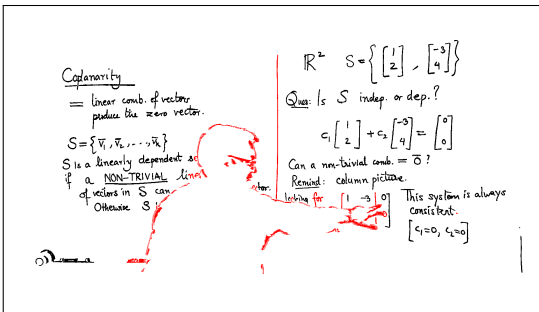 Coplanarity
= linear comb. of vectors
produce the zero vector.
S = {v̅₁, v̅₂, ..., v̅ₖ}
S is a linearly dependent
if a NON-TRIVIAL
of vectors in S can
Otherwise S
ℝ² S = { [1 2], [-3 4] }
Ques: Is S indep. or dep.?
c₁ [1 2] + c₂ [-3 4] = [0 0]
Can a non-trivial comb. = 0̅ ?
Remind: column picture.
looking for [ 1 -3 | 0
This system is always
consistent.
[c₁=0, c₂=0]